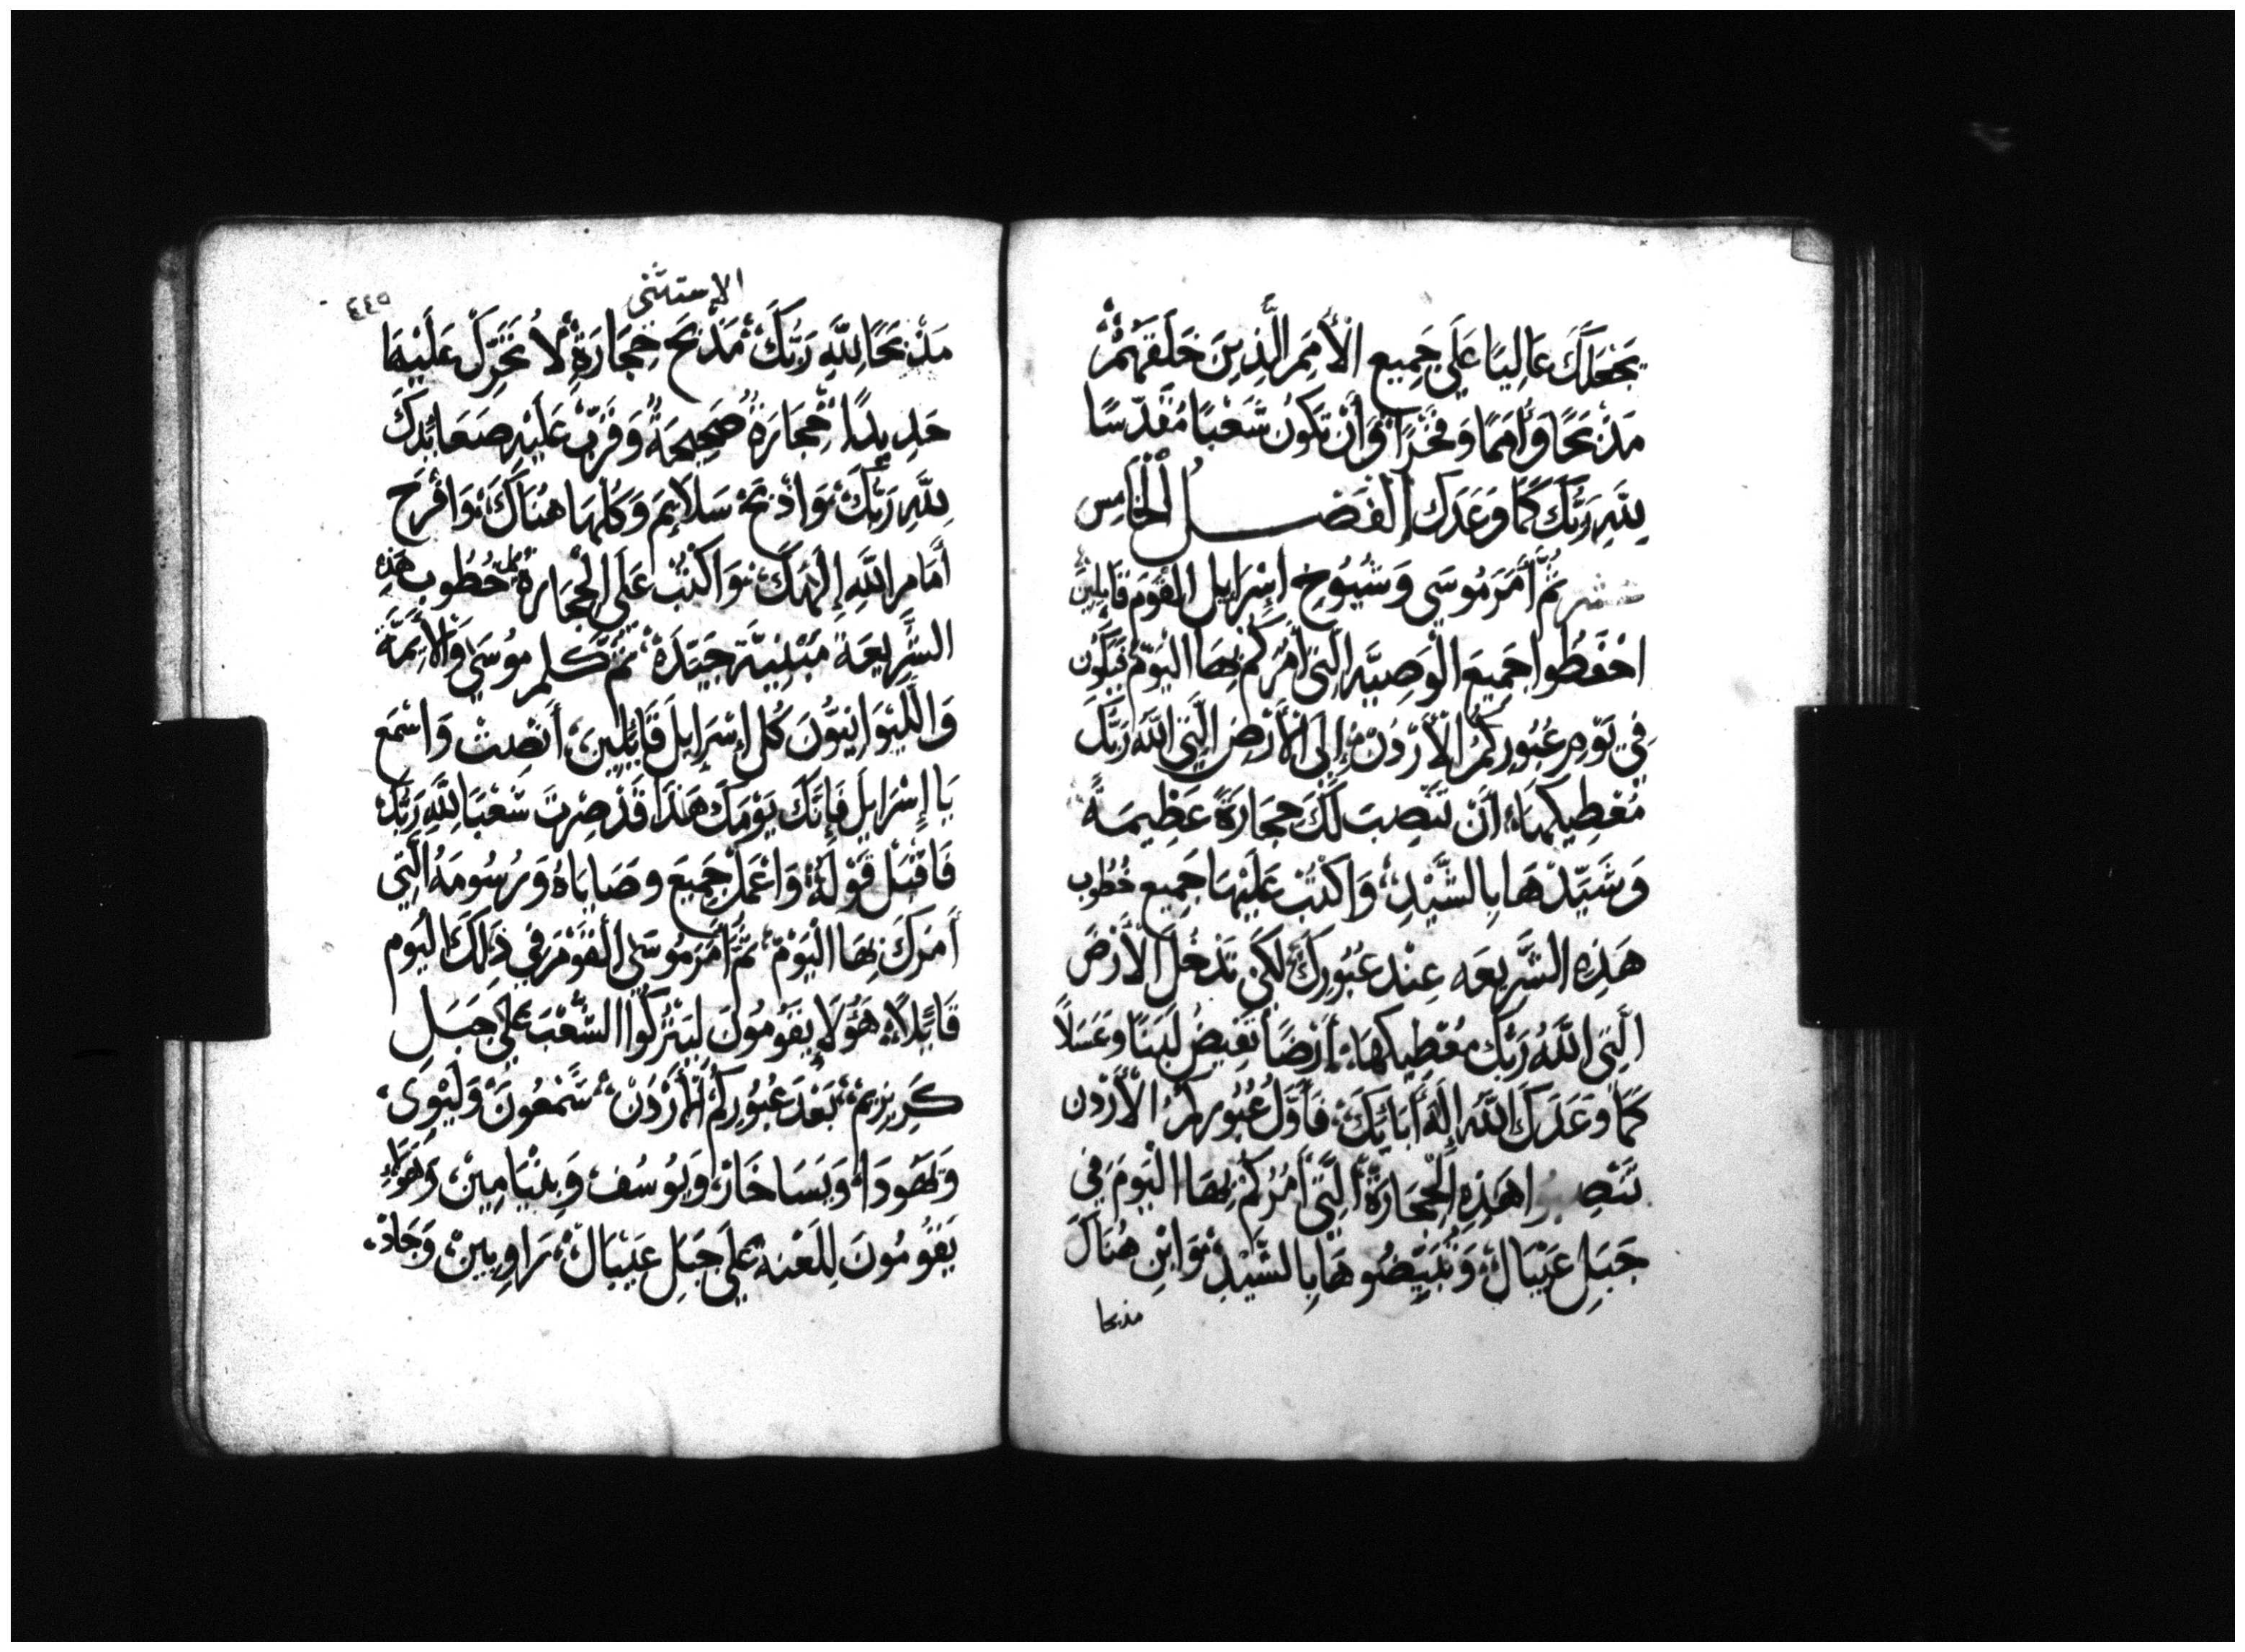 يَجْعَلَكَ عَالِيًا عَلَي جَمِيعِ الْأُمَمِ الَّذِينَ خَلَقَهُمْ
مَذْبَحًا وَأُمَمًا وَفَخْرًا وَأَنْ تَكُونَ شَعْبًا مُقَدَّسًا
لِلَّهِ رَبِّكَ كَمَا وَعَدَكَ الْفَصْلُ الْخَامِس
ثُمَّ أَمَرَ مُوسَي وَشُيُوخِ إِسْرَايِل الْقَوْمَ قَايِلِينَ
احْفَظُوا جَمِيعَ الْوَصِيَّه الَّتِي أَمُرُكُمْ بِهَا الْيَوْمَ فَيَكُون
فِي يَوْمِ عُبُورِكُمُ الْأُرْدُنَ إِلَى الْأَرْضِ الَّتِي اللَّهُ رَبُّكَ
مُعْطِيكَهَا أَنْ تَنْصِبَ لَكَ حِجَارَةً عَظِيمَةً
وَشَيِّدْهَا بِالشَّيْدِ وَاكْتُبْ عَلَيْهَا جَمِيع خُطُوب
هَذِهِ الشَّرِيعَه عِنْد عُبُورِكَ لَكَيْ تَدْخُلَ الْأَرْضَ
الَّتِي اللَّهُ رَبُّكَ مُعْطِيكَهَا أَرْضًا تَفِيضُ لَبَنًا وَعَسَلًا
كَمَا وَعَدَكَ اللَّهُ إِلَهُ أَبَايِكَ فَأَوَّلُ عُبُورِكُمْ الْأُرْدُن
هَذِهِ الْحِجَارَةَ الَّتِي أَمُرُكُمْ بِهَا الْيَوْمَ فِي
جَبَلِ عَيْبَالَ وَتُبَيِّضُوهَا بِالشَّيْدِ وَابْنِ هُنَاكَ
مذبحا
الإستثنى
٤٤٥
مَذْبَحًا لِلَّهِ رَبِّكَ مَذْبَح حِجَارَةٍ لَا تُحَرِّك عَلَيْهَا
حَدِيدًا حِجَارَةً صَحِيحَةً وَقَرِّبْ عَلَيْهِ صَعَايِدَكَ
لِلَّهِ رَبِّكَ وَاذْبَحْ سَلَايِمَ وَكُلْهَا هُنَاكَ وَافْرَحْ
أَمَام اللَّهِ إِلَهِكَ وَاكْتُبْ عَلَي الْحِجَارَة كل خُطُوب هَذِهِ
الشَّرِيعَة مُبَيَّنَةً جَيِّدَةً ثُمَّ كَلَّم مُوسَي وَالْأَيِمَّة
وَاللَّيْوَانِيُّونَ كُل إِسْرَايِل قَايِلِينَ أَنْصِتْ وَاسْمَع
يَا إِسْرَايِل فَإِنَّكَ يَوْمَكَ هَذَا قَدْ صِرْتَ شَعْبًا لِلَّهِ رَبِّكَ
فَاقْبَلْ قَوْلَهُ وَاعْمَلْ جَمِيعَ وَصَايَاهُ وَرُسُومَهُ الَّتِي
أَمَرَكَ بِهَا الْيَوْمَ ثُمَّ أَمَرَ مُوسَى الْقَوْمَ فِي ذَلِكَ الْيَوم
قَايِلًا هَؤُلَاءِ يَقُومُونَ لِيُبَرِّكُوا الشَّعْبَ عَلَي جَبَلِ
كَرِيزِيمَ بَعْدَ عُبُورِكُمْ الْأُرْدُنَ شَمْعُونَ وَلَيْوَى
وَيَهُودَا وَيَسَاخَارْ وَيُوسُفْ وَبِنْيَامِينْ وَهَؤُلَاءِ
يَقُومُونَ لِلَعْنَةِ عَلَي جَبَلِ عَيْبَالَ رَاوِبِينْ وَجَادْ